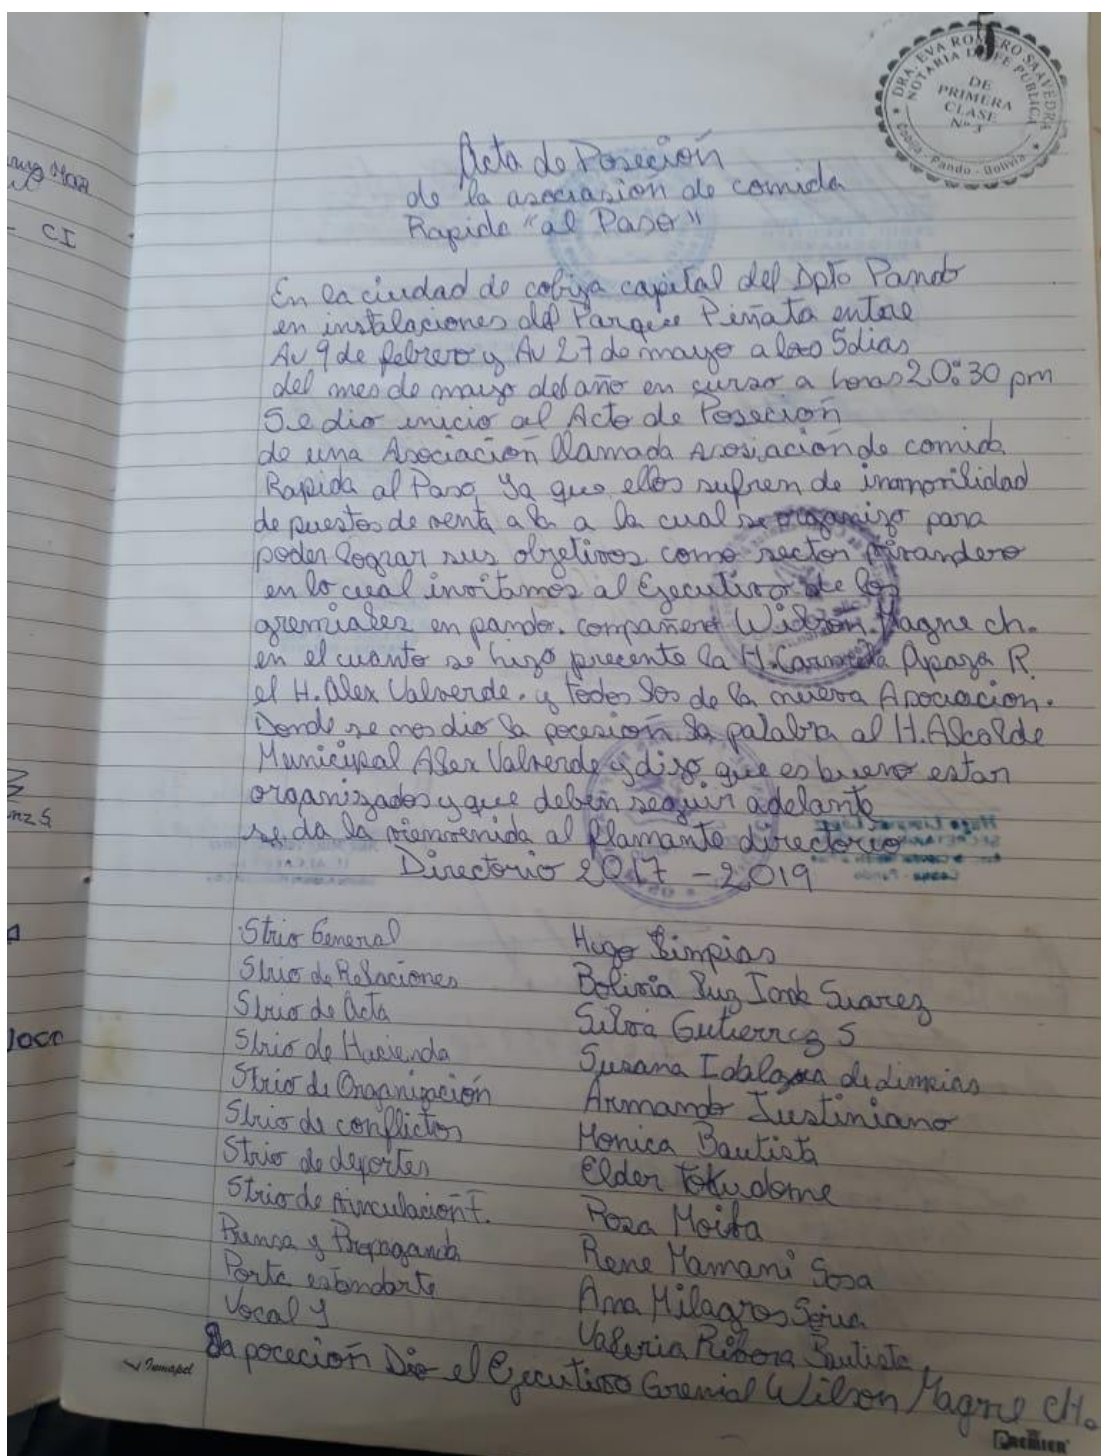 5
DRA. EVA ROMERO SAAVEDRA
NOTARIA DE FE PUBLICA
DE
PRIMERA
CLASE
Nº 5
Cobija - Pando - Bolivia
CI
Acta de Poseción
de la asociasion de comida
Rapida "al Paso"
En la ciudad de cobija capital del Dpto Pando
en instalaciones del Parque Piñata entre
Av 9 de febrero y Av 27 de mayo a los 5 dias
del mes de mayo del año en curso a horas 20:30 pm
Se dio inicio al Acto de Poseción
de una Asociación llamada Asosiación de comida
Rapida al Paso, ya que ellos sufren de
de puestos de venta a la a la cual se organizo para
poder lograr sus objetivos como sector
en lo cual invitamos al Ejecutivo de los
gremiales en pando. compañero Wilson. Magne ch.
en el cuanto se hizo precente la H. Carmela Apaza R.
el H. Alex Valverde. y todos los de la nueva Asociacion.
Donde se nos dio la pocesión la palabra al H. Alcalde
Municipal Alex Valverde y dijo que es bueno estar
organizados y que deben seguir adelante
se da la vienvenida al flamante directorio
Directorio 2017 - 2019
Strio General Hugo Limpias
Strio de Relaciones Bolivia Luz Suarez
Strio de Acta Silvia Gutierrez S
Strio de Hacienda Susana de Limpias
Strio de Organización Armando Justiniano
Strio de conflictos Monica Bautista
Strio de deportes Elder Tokudome
Strio de vinculación F. Rosa
Prensa y Propaganda Rene Mamani Sosa
Porta estandarte Ana Milagros
Vocal 1 Valeria Ribera Bautista,
La poceción Dio el Ejecutivo Gremial Wilson Magne CH.